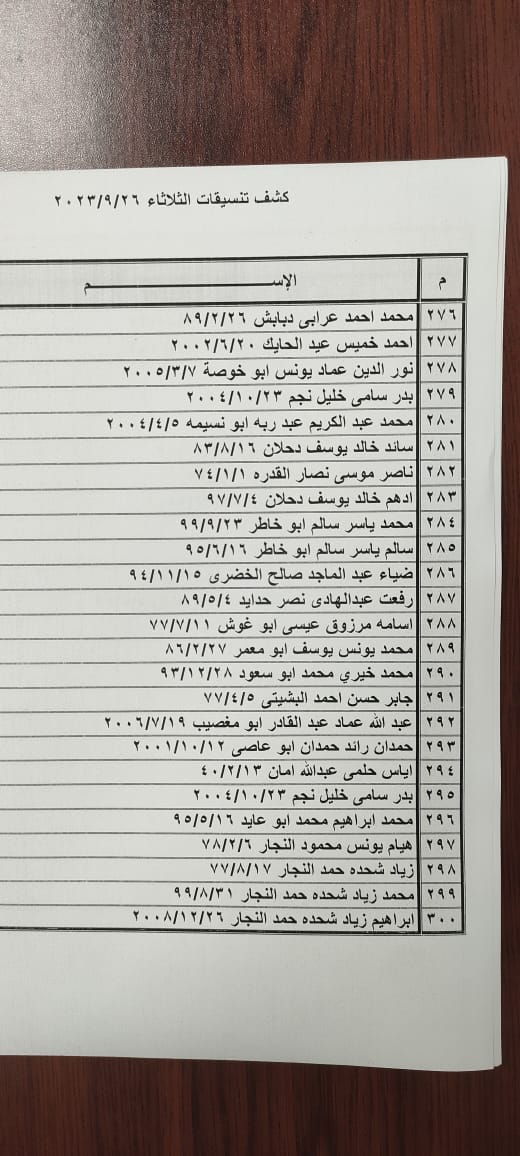 كشف تنسيقات الثلاثاء ٢٠٢٣/٩/٢٦
م الإســـــــــــــم
٢٧٦ محمد احمد عرابى دبابش ٨٩/٢/٢٦
٢٧٧ احمد خميس عيد الحايك ٢٠٠٢/٦/٢٠
٢٧٨ نور الدين عماد يونس ابو خوصة ٢٠٠٥/٣/٧
٢٧٩ بدر سامى خليل نجم ٢٠٠٤/١٠/٢٣
٢٨٠ محمد عبد الكريم عبد ربه ابو نسيمه ٢٠٠٤/٤/٥
٢٨١ سائد خالد يوسف دحلان ٨٣/٨/١٦
٢٨٢ ناصر موسى نصار القدره ٧٤/١/١
٢٨٣ ادهم خالد يوسف دحلان ٩٧/٧/٤
٢٨٤ محمد ياسر سالم ابو خاطر ٩٩/٩/٢٣
٢٨٥ سالم ياسر سالم ابو خاطر ٩٥/٦/١٦
٢٨٦ ضياء عبد الماجد صالح الخضرى ٩٤/١١/١٥
٢٨٧ رفعت عبدالهادى نصر حدايد ٨٩/٥/٤
٢٨٨ اسامه مرزوق عيسى ابو غوش ٧٧/٧/١١
٢٨٩ محمد يونس يوسف ابو معمر ٨٦/٢/٢٧
٢٩٠ محمد خيري محمد ابو سعود ٩٣/١٢/٢٨
٢٩١ جابر حسن احمد البشيتى ٧٧/٤/٥
٢٩٢ عبد الله عماد عبد القادر ابو مغصيب ٢٠٠٦/٧/١٩
٢٩٣ حمدان رائد حمدان ابو عاصى ٢٠٠١/١٠/١٢
٢٩٤ اياس حلمى عبدالله امان ٤٠/٢/١٣
٢٩٥ بدر سامى خليل نجم ٢٠٠٤/١٠/٢٣
٢٩٦ محمد ابراهيم محمد ابو عايد ٩٥/٥/١٦
٢٩٧ هيام يونس محمود النجار ٧٨/٢/٦
٢٩٨ زياد شحده حمد النجار ٧٧/٨/١٧
٢٩٩ محمد زياد شحده حمد النجار ٩٩/٨/٣١
٣٠٠ ابراهيم زياد شحده حمد النجار ٢٠٠٨/١٢/٢٦